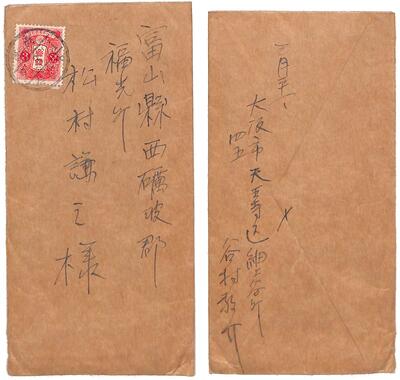 富山縣西礪波郡
福光町
松村謙三様
一月廿一
大阪市天王寺区細工谷町
四五
谷村敬介